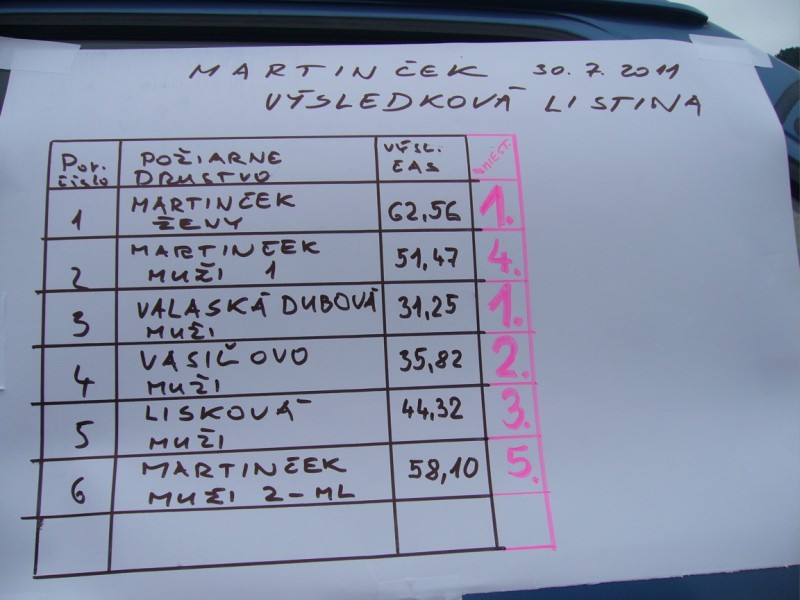 MARTINČEK 30.7.2011
VÝSLEDKOVÁ LISTINA
Por. číslo POŽIARNE DRUSTVO VÝSL. ČAS UMIEST.
1 MARTINČEK ŽENY 62,56 1.
2 MARTINČEK MUŽI 1 51,47 4.
3 VALASKÁ DUBOVÁ MUŽI 31,25 1.
4 VASIĽOVO MUŽI 35,82 2.
5 LISKOVÁ MUŽI 44,32 3.
6 MARTINČEK MUŽI 2-ML 58,10 5.